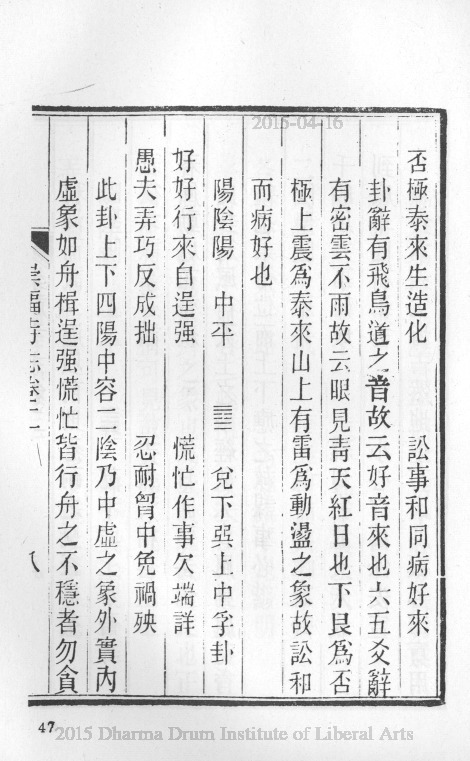 2015-04-16
否極泰來生造化　訟事和同病好來
卦辭有飛鳥道之音故云好音來也六五爻辭
有密雲不雨故云眼見靑天紅日也下艮爲否
極上震爲泰來山上有雷爲動盪之象故訟和
而病好也
陽陰陽　中平　䷼　兌下巽上中孚卦
好好行來自逞强　慌忙作事欠端詳
愚夫弄巧反成拙　忍耐胷中免禍殃
此卦上下四陽中容二陰乃中虛之象外實內
虛象如舟楫逞强慌忙皆行舟之不穩者勿貪
崇福寺志卷二　八
47
2015 Dharma Drum Institute of Liberal Arts